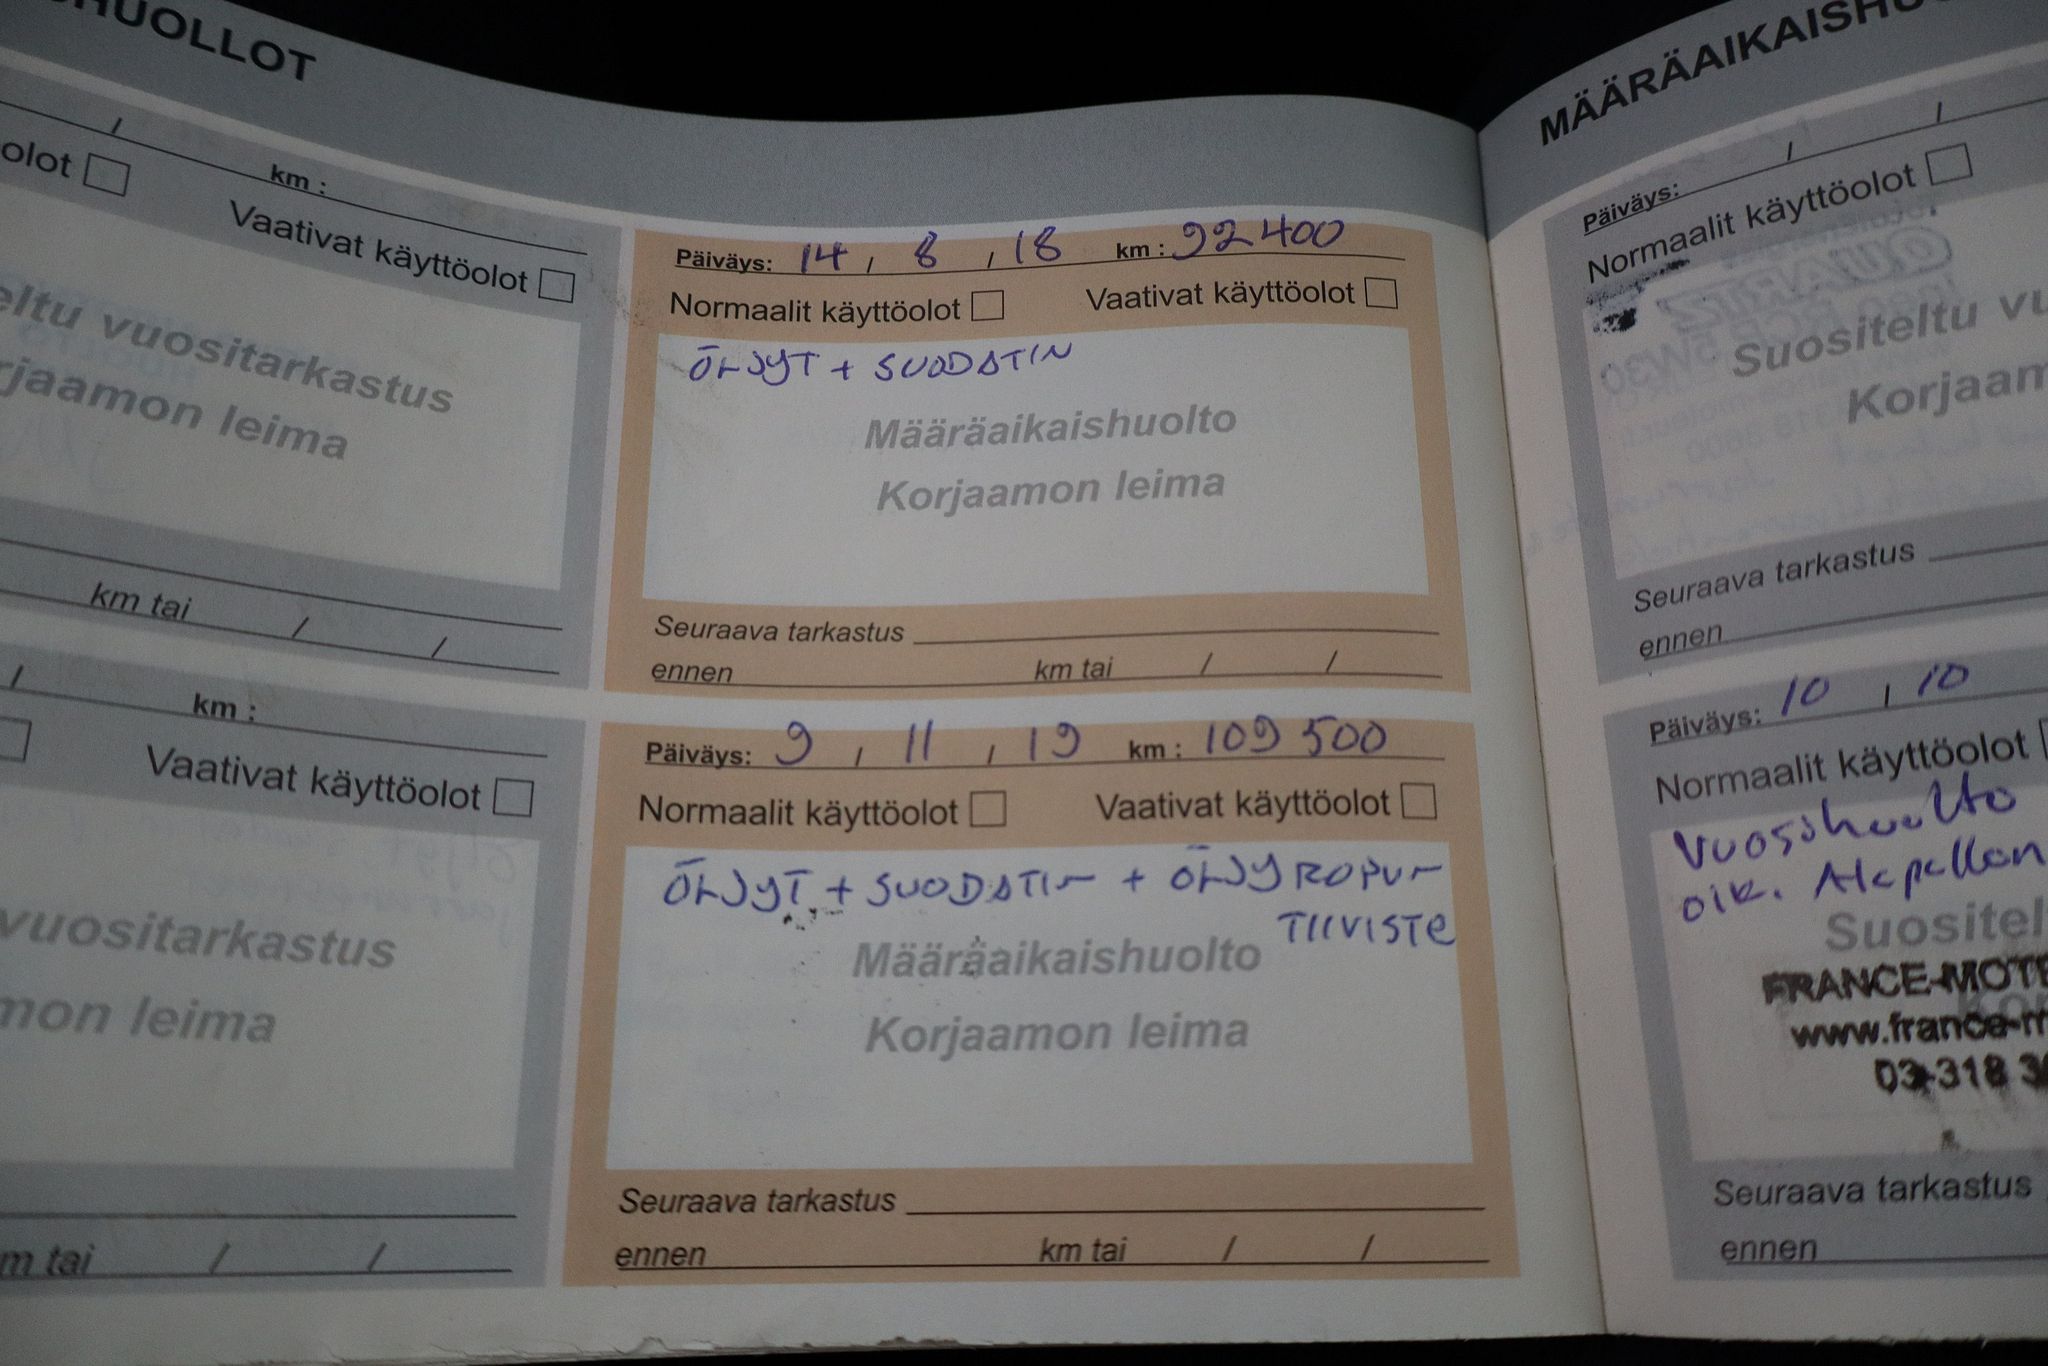 HUOLLOT
km :
olot
Vaativat käyttöolot
vuositarkastus
leima
km tai
km :
Vaativat käyttöolot
vuositarkastus
leima
tai
Päiväys: 14 / 8 / 18 km : 92400
Normaalit käyttöolot Vaativat käyttöolot
ÖLJYT + SUODATIN
Määräaikaishuolto
Korjaamon leima
Seuraava tarkastus
ennen km tai / /
Päiväys: 9 / 11 / 19 km : 109 500
Normaalit käyttöolot Vaativat käyttöolot
ÖLJYT + SUODATIN + ÖLJYROPUN
TIIVISTE
Määräaikaishuolto
Korjaamon leima
Seuraava tarkastus
ennen km tai / /
MÄÄRÄAIKAISHUO
Päiväys: / /
Normaalit käyttöolot
QUARTZ
5W30
Suositeltu vu
Korjaam
Seuraava tarkastus
ennen
Päiväys: 10 / 10
Normaalit käyttöolot
Vuosihuolto
oik. Alapallon
Suositel
FRANCE-MOTE
www.france-m
03-318 3
Seuraava tarkastus
ennen